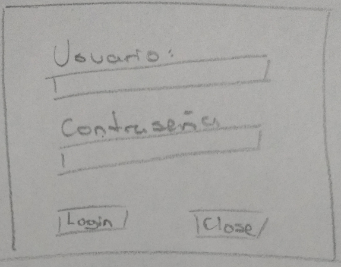 Usuario:
Contraseña
Login Close